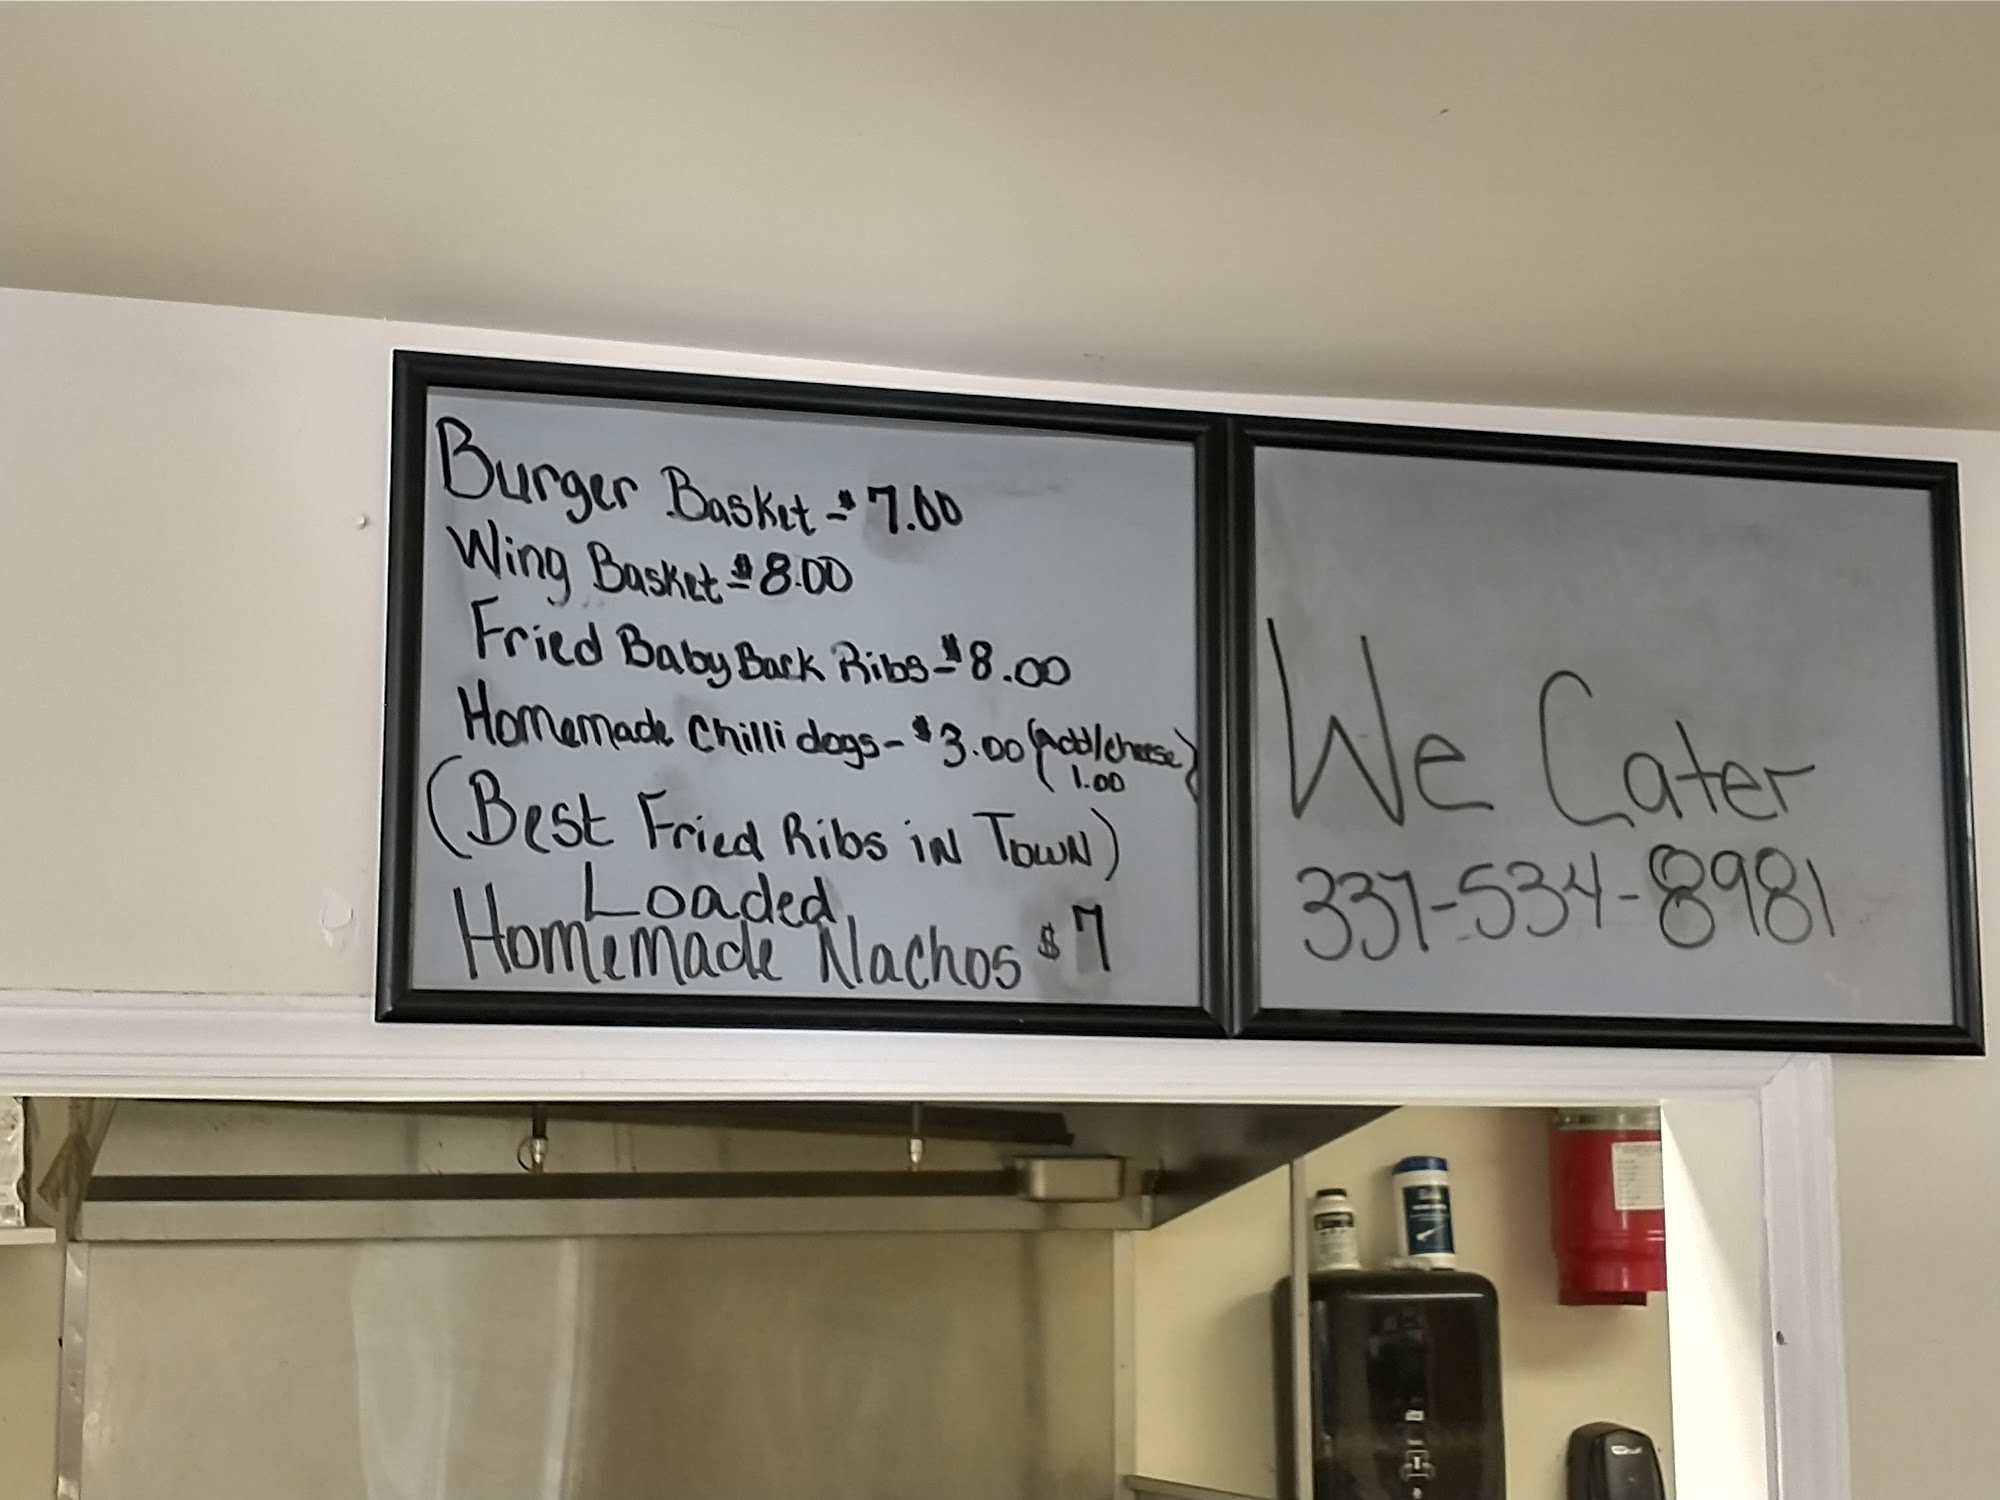 Burger Basket - $7.00
Wing Basket - $8.00
Fried Baby Back Ribs - $8.00
Homemade Chilli dogs - $3.00 (Add/cheese
1.00)
(Best Fried Ribs in Town)
Loaded
Homemade Nachos $7
We Cater
337-534-8981